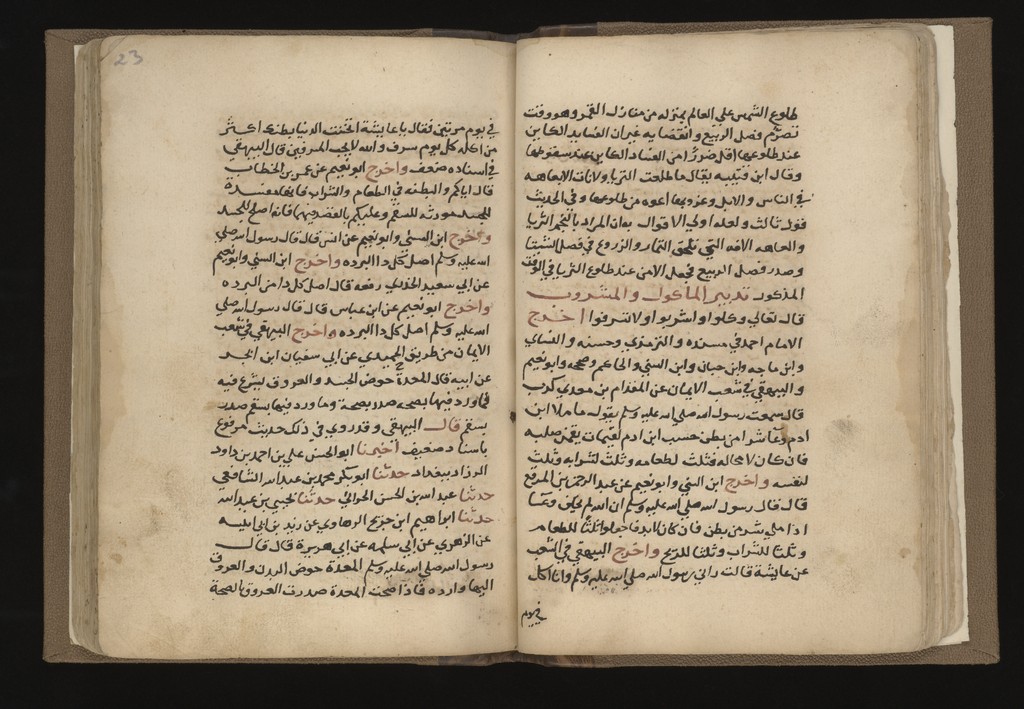 طلوع الشمس علي العالم بمنزله من منازل القمر وهو وقت
تصرم فصل الربيع وانقضايه غيران الفسايد الكاين
عند طلوعها اقل ضررا من الفساد الكاين عند سقوطها
وقال ابن قتيبه يقال ما طلعت الثريا ولا نات الا بعاهه
في الناس والابل وغروبها اعوه من طلوعها وفي الحديث
قول ثالث ولعله اولي الاقوال به ان المراد بالنجم الثريا
والعاهه الافه التي تلحق الثمار والزروع في فصل الشتا
وصدر فصل الربيع فحصل الامن عند طلوع الثريا في الوقت
المذكور تدبير الماكول والمشروب
قال تعالي وكلوا واشربوا ولا تسرفوا اخرج
الامام احمد في مسنده والترمذي وحسنه والنساي
وابن ماجه وابن حبان وابن السني والحاكم وصححه وابو نعيم
والبيهقي في شعب الايمان عن المقدام بن معدي كرب
قال سمعت رسول الله صلي الله عليه وسلم يقول ما ملا ابن
ادم وعا شرا من بطن حسب ابن ادم لقيمات يقمن صلبه
فان كان لا محاله فثلث لطعامه وثلث لشرابه وثلث
لنفسه واخرج ابن السني وابو نعيم عن عبد الرحمن بن المرقع
قال قال رسول الله صلي الله عليه وسلم ان الله لم يخلق وعا
اذا ملي شر من بطن فان كان لابد فاجعلوا ثلثا للطعام
وثلثا للشراب وثلثا للريح واخرج البيهقي في الشعب
عن عايشة قالت راني رسول الله صلي الله عليه وسلم وانا اكل
في يوم
23
في يوم مرتين فقال يا عايشة اتخذت الدنيا بطنك اكثر
من اكله كل يوم سرف والله لا يحب المسرفين قال البيهقي
في اسناده ضعف واخرج ابو نعيم عن عمر بن الخطاب
قال اياكم والبطنه في الطعام والشراب فانها مفسدة
للجسد مورثه للسقم وعليكم بالقصد فيهما فانه اصلح للجسد
واخرج ابن السني وابو نعيم عن انس قال قال رسول الله صلي
الله عليه وسلم اصل كل دا البرده واخرج ابن السني وابو نعيم
عن ابي سعيد الخدري رفعه قال اصل كل دا من البرده
واخرج ابو نعيم عن ابن عباس قال قال رسول الله صلي
الله عليه وسلم اصل كل دا البرده واخرج البيهقي في شعب
الايمان من طريق الحميدي عن ابي سفيان ابن ابجد
عن ابيه قال المعدة حوض الجسد والعروق يشرع فيه
فما ورد فيها بصحه صدر بصحة وما ورد فيها بسقم صدر
بسقم قال البيهقي وقد روي في ذلك حديث مرفوع
باسناد ضعيف اخبرنا ابو الحسن علي بن احمد بن داود
الرزاز ببغداد حدثنا ابو بكر محمد بن عبد الله الشافعي
حدثنا عبد الله بن الحسن الحراني حدثنا يحيي بن عبد الله
حدثنا ابراهيم ابن جريج الرهاوي عن زيد بن ابي انيسه
عن الزهري عن ابي سلمه عن ابي هريرة قال قال
رسول الله صلي الله عليه وسلم المعدة حوض البدن والعروق
اليها وارده فاذا صحت المعدة صدرت العروق بالصحة